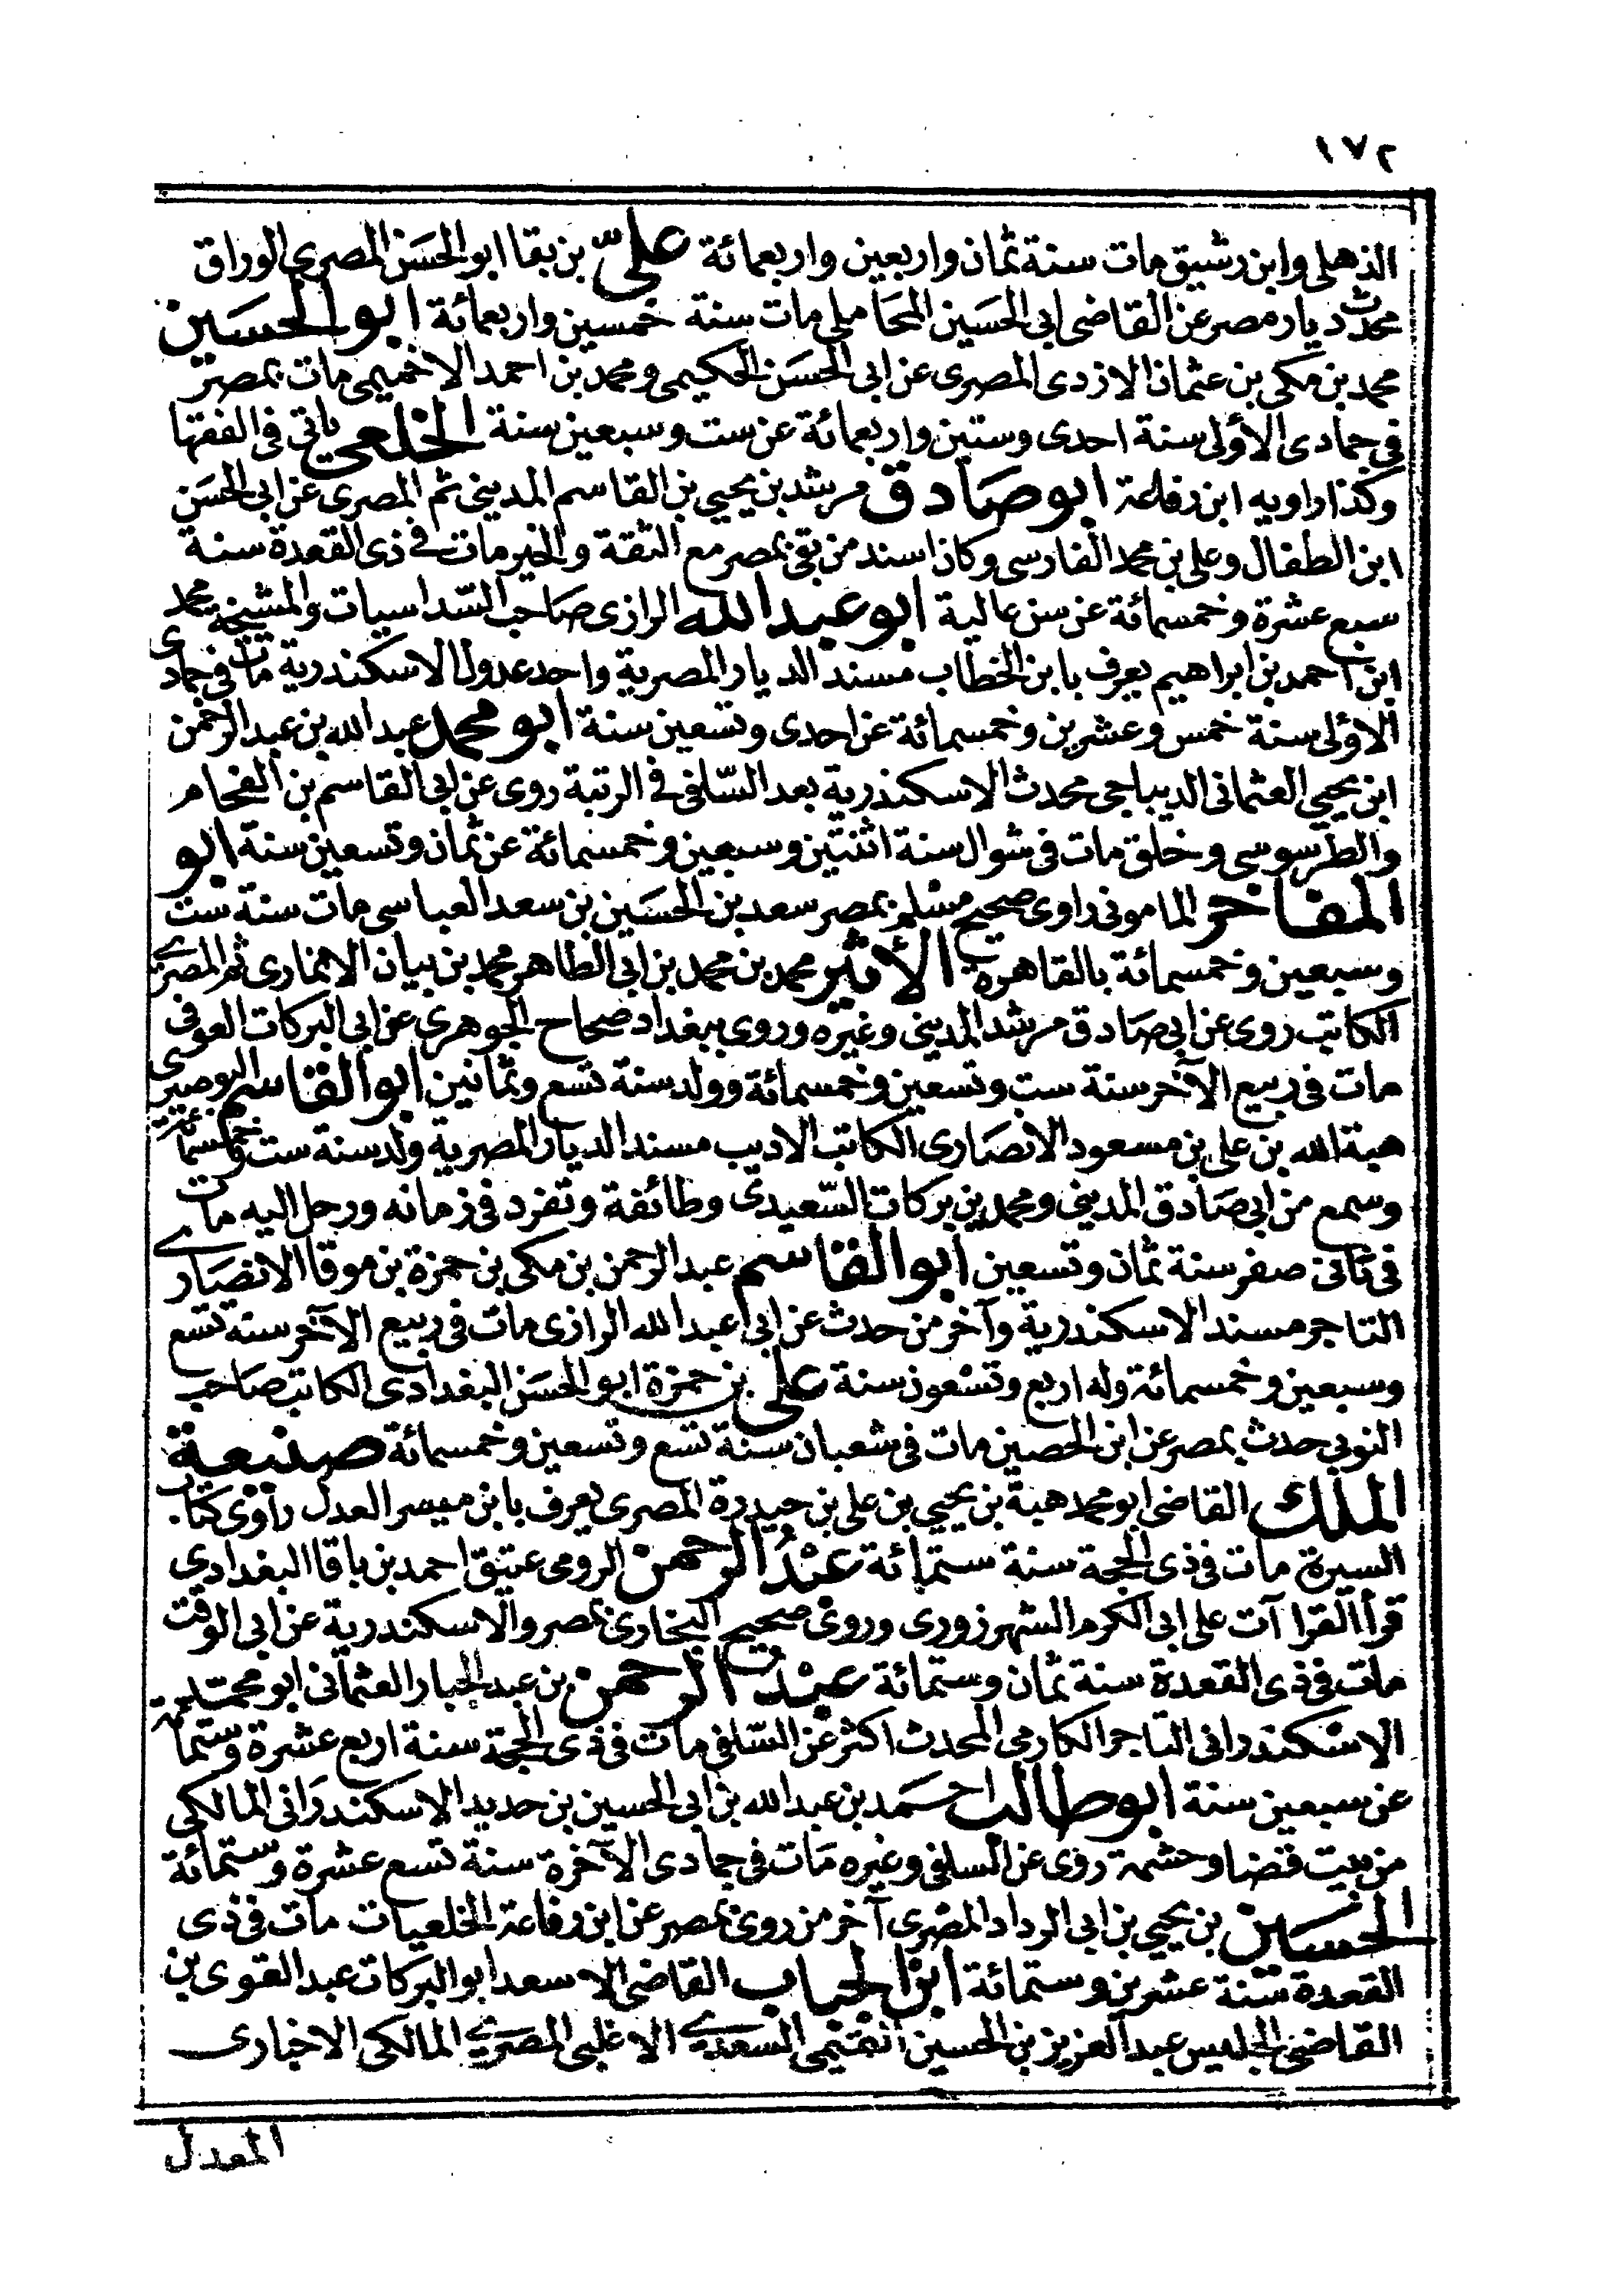 ١٧٢
الذهلى وابن رشيق مات سنة ثمان واربعين واربعمائة علىّ بن بقا ابو الحسن المصرى الوراق
محدث ديار مصر عن القاضى ابى الحسين المحاملى مات سنة خمسين واربعمائة ابو الحسين
محمد بن مكى بن عثمان الازدى المصرى عن ابى الحسن الحكيمى ومحمد بن احمد الاخميمى مات بمصر
فى جمادى الأولى سنة احدى وستين واربعمائة عن ست وسبعين سنة الخلعى ياتى فى الفقها
وكذا راويه ابن رفاعة ابو صادق مرشد بن يحيى بن القاسم المدينى ثم المصرى عن ابى الحسن
ابن الطفال وعلى بن محمد الفارسى وكان اسند من بقى بمصر مع الثقة والخير مات فى ذى القعدة سنة
سبع عشرة وخمسمائة عن سن عالية ابو عبد الله الرازى صاحب السداسيات والمشيخة محمد
ابن احمد بن ابراهيم يعرف بابن الخطاب مسند الديار المصرية واحد عدول الاسكندرية مات فى جمادى
الاولى سنة خمس وعشرين وخمسمائة عن احدى وتسعين سنة ابو محمد عبد الله بن عبد الرحمن
ابن يحيى العثمانى الديباجى محدث الاسكندرية بعد السّلفى فى الرتبة روى عن ابى القاسم بن الفحام
والطرسوسى وخلق مات فى شوال سنة اثنتين وسبعين وخمسمائة عن ثمان وتسعين سنة ابو
المفاخر المامونى راوى صحيح مسلم بمصر سعد بن الحسين بن سعد العباسى مات سنة ست
وسبعين وخمسمائة بالقاهرة الأثير محمد بن محمد بن ابى الطاهر محمد بن بيان الانبارى ثم المصرى
الكاتب روى عن ابى صادق مرشد المدينى وغيره وروى ببغداد صحاح الجوهرى عن ابى البركات العوفى
مات فى ربيع الآخر سنة ست وتسعين وخمسمائة وولد سنة تسع وثمانين ابو القاسم البوصيرى
هبة الله بن على بن مسعود الانصارى الكاتب الاديب مسند الديار المصرية ولد سنة ست وخمسمائة
وسمع من ابى صادق المدينى ومحمد بن بركات السّعيدى وطائفة وتفرد فى زمانه ورحل اليه مات
فى ثانى صفر سنة ثمان وتسعين ابو القاسم عبد الرحمن بن مكى بن حمزة بن موقا الانصارى
التاجر مسند الاسكندرية وآخر من حدث عن ابى عبد الله الرازى مات فى ربيع الآخر سنة تسع
وسبعين وخمسمائة وله اربع وتسعون سنة على بن حمزة ابو الحسن البغدادى الكاتب صاحب
النوبى حدث بمصر عن ابن الحصين مات فى شعبان سنة تسع وتسعين وخمسمائة صنيعة
الملك القاضى ابو محمد هبة بن يحيى بن على بن حيدرة المصرى يعرف بابن ميسر العدل راوى كتاب
السيرة مات فى ذى الحجة سنة ستمائة عبد الرحمن الرومى عتيق احمد بن باقا البغدادى
قرأ القراآت على ابى الكرم الشهرزورى وروى صحيح البخارى بمصر والاسكندرية عن ابى الوقت
مات فى ذى القعدة سنة ثمان وستمائة عبد الرحمن بن عبد الجبار العثمانى ابو محمد
الاسكندرانى التاجر الكارمى المحدث اكثر عن السّلفى مات فى ذى الحجة سنة اربع عشرة وستمائة
عن سبعين سنة ابو طالب احمد بن عبد الله بن ابى الحسين بن حديد الاسكندرانى المالكى
من بيت قضا وحشمة روى عن السلفى وغيره مات فى جمادى الآخرة سنة تسع عشرة وستمائة
الحسين بن يحيى بن ابى الرداد المصرى آخر من روى بمصر عن ابن رفاعة الخلعيات مات فى ذى
القعدة سنة عشرين وستمائة ابن الجباب القاضى الاسعد ابو البركات عبد القوى بن
القاضى الجليس عبد العزيز بن الحسين التميمى السعدى الاغلبى المصرى المالكى الاخبارى
المعدل